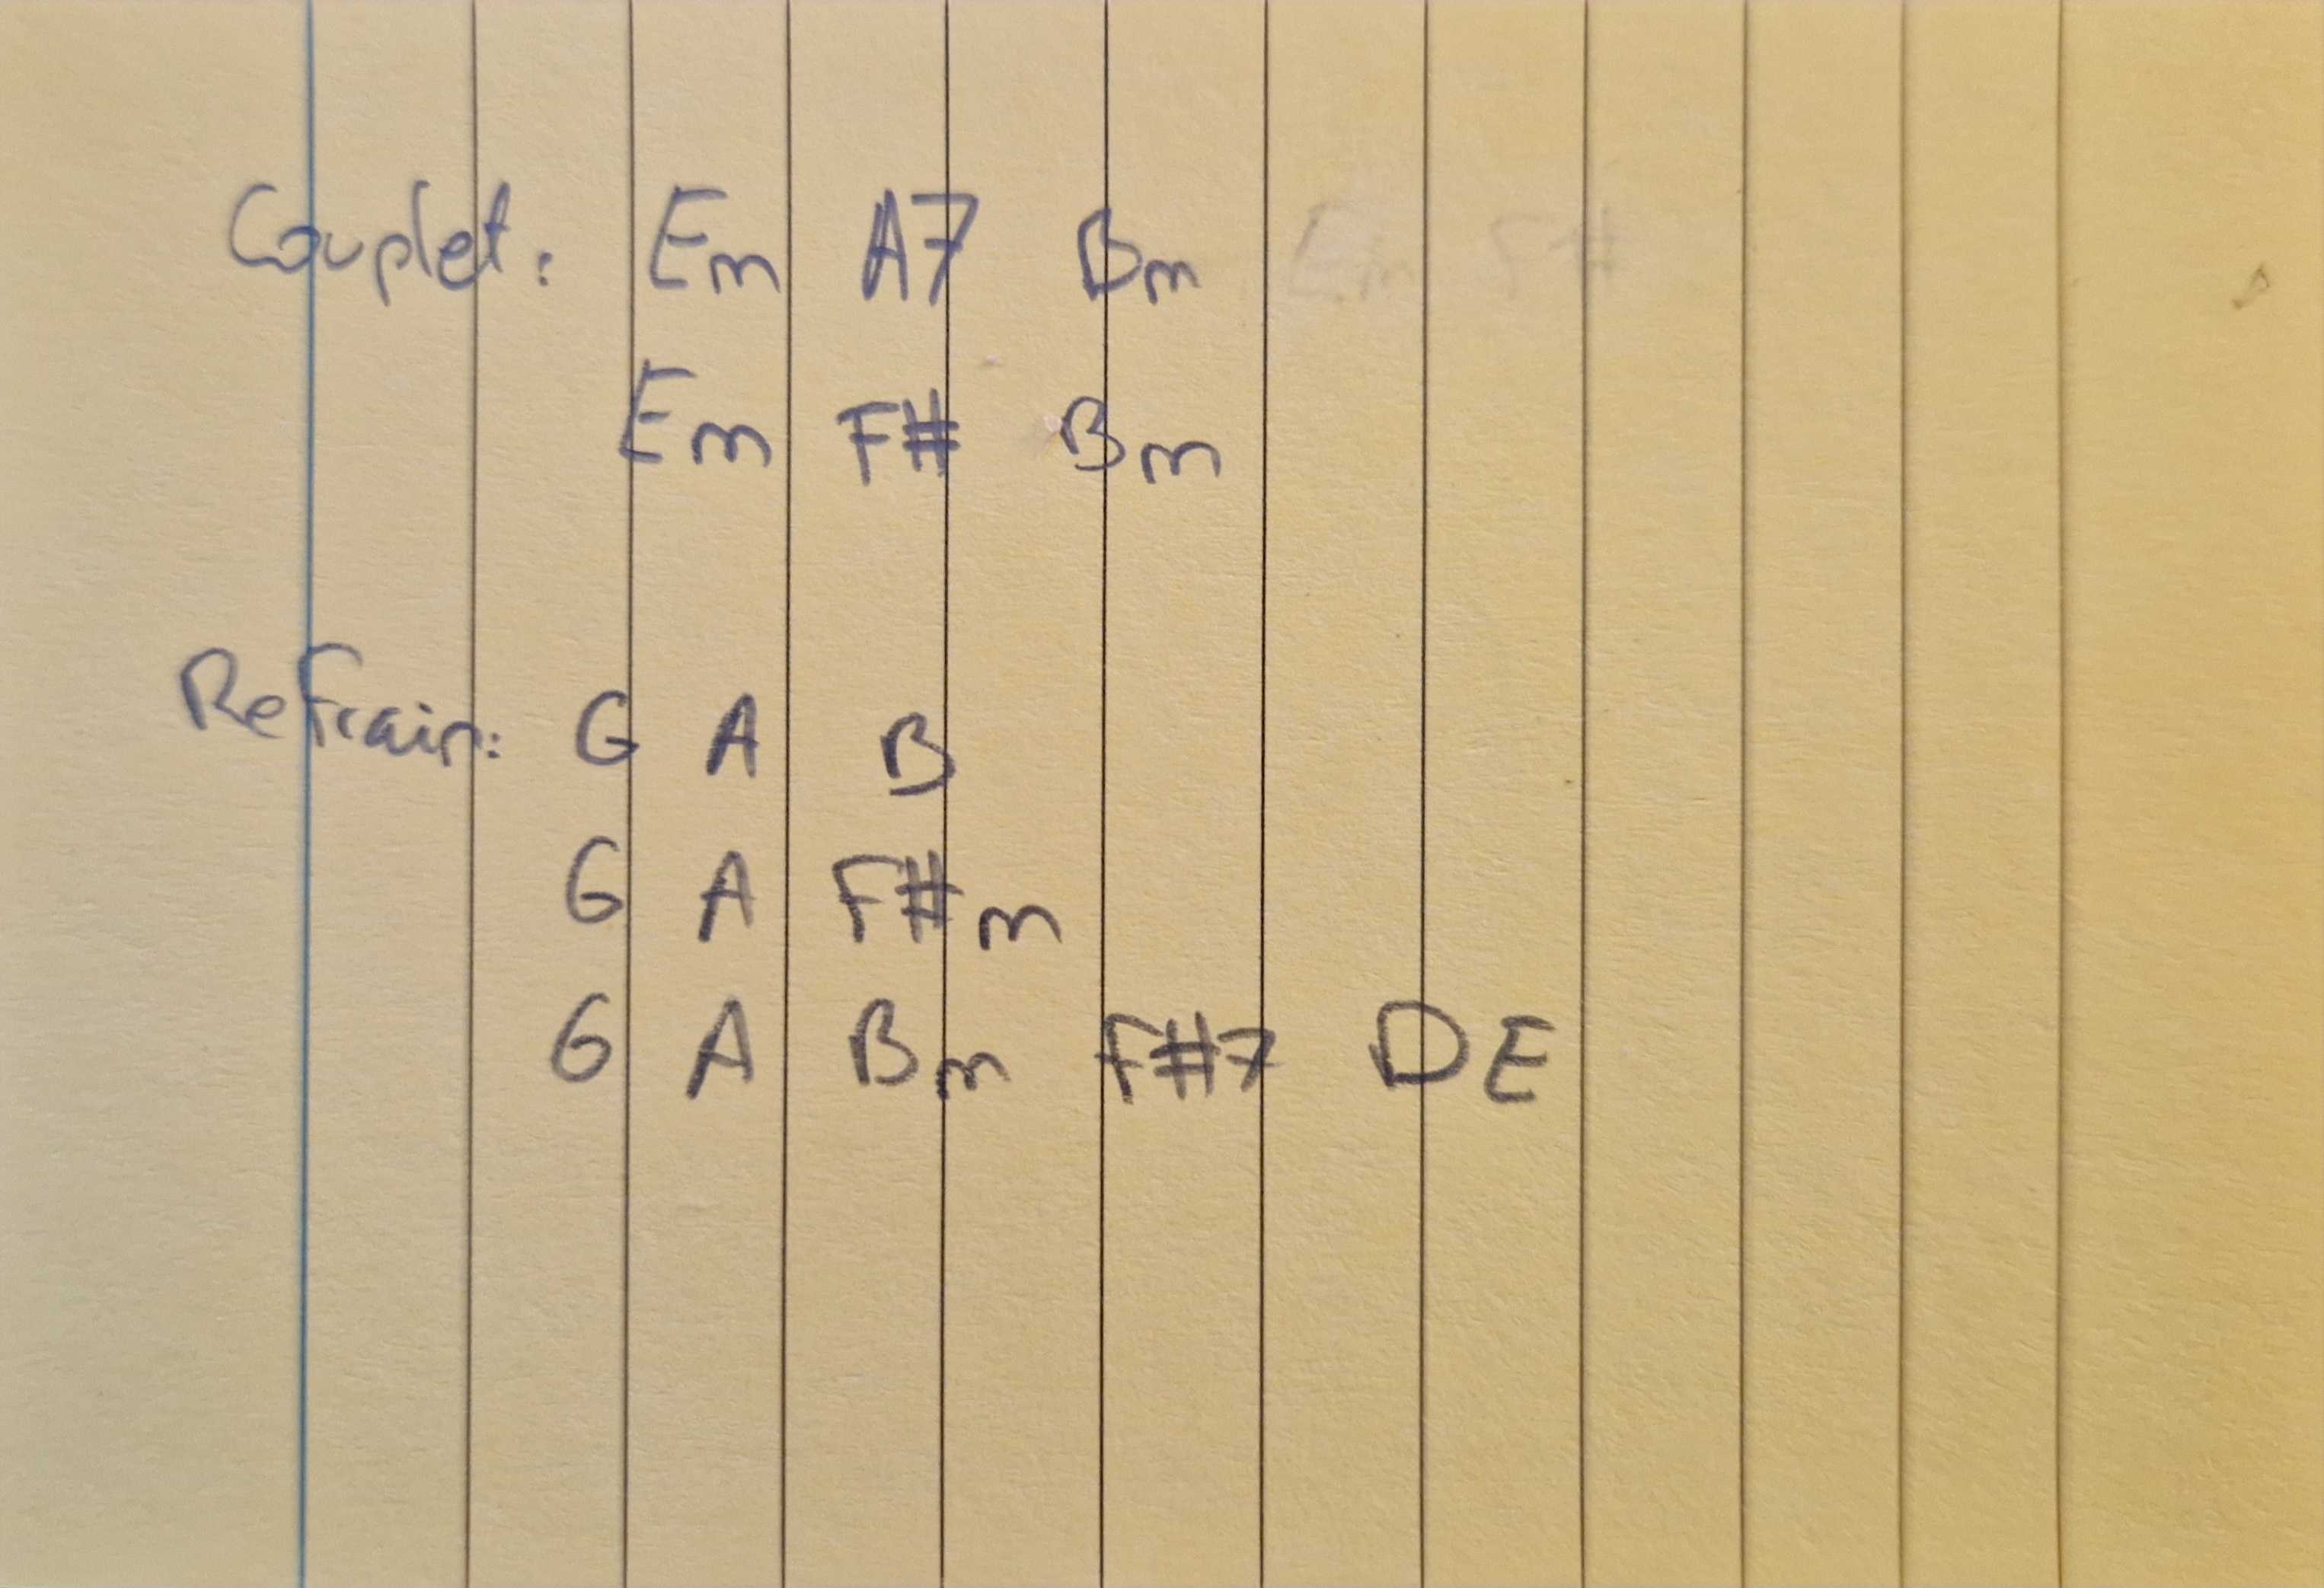 Couplet: Em A7 Bm Em F#
Em F# Bm
Refrain: G A B
G A F#m
G A Bm F#7 D E